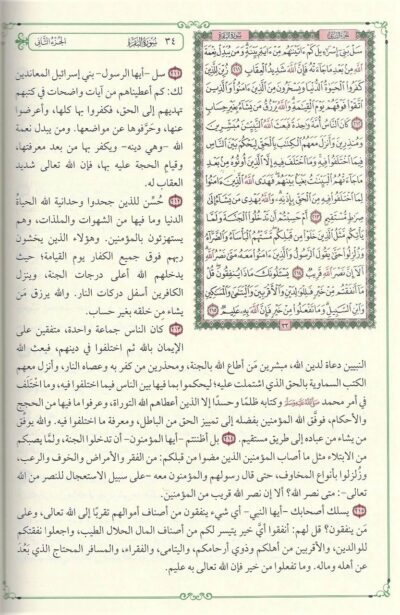 الجزء الثاني
سورة البقرة
٣٤
الجزء الثاني
سورة البقرة
سل بني إسرءيل كم ءاتينهم من ءاية بينة ومن يبدل نعمة
الله من بعد ما جاءته فإن الله شديد العقاب ٢١١ زين للذين
كفروا الحيوة الدنيا ويسخرون من الذين ءامنوا والذين
اتقوا فوقهم يوم القيمة والله يرزق من يشاء بغير حساب
٢١٢ كان الناس أمة وحدة فبعث الله النبين مبشرين
ومنذرين وأنزل معهم الكتب بالحق ليحكم بين الناس
فيما اختلفوا فيه وما اختلف فيه إلا الذين أوتوه من بعد
ما جاءتهم البينت بغيا بينهم فهدى الله الذين ءامنوا
لما اختلفوا فيه من الحق بإذنه والله يهدي من يشاء إلى
صرط مستقيم ٢١٣ أم حسبتم أن تدخلوا الجنة ولما
يأتكم مثل الذين خلوا من قبلكم مستهم البأساء والضراء
وزلزلوا حتى يقول الرسول والذين ءامنوا معه متى نصر الله
ألا إن نصر الله قريب ٢١٤ يسئلونك ماذا ينفقون قل
ما أنفقتم من خير فللولدين والأقربين واليتمى والمسكين
وابن السبيل وما تفعلوا من خير فإن الله به عليم ٢١٥
٣٣
٢١١ سل -أيها الرسول- بني إسرائيل المعاندين
لك: كم أعطيناهم من آيات واضحات في كتبهم
تهديهم إلى الحق، فكفروا بها كلها، وأعرضوا
عنها، وحرَّفوها عن مواضعها. ومن يبدل نعمة
الله -وهي دينه- ويكفر بها من بعد معرفتها،
وقيام الحجة عليه بها، فإن الله تعالى شديد
العقاب له.
٢١٢ حُسِّن للذين جحدوا وحدانية الله الحياة
الدنيا وما فيها من الشهوات والملذات، وهم
يستهزئون بالمؤمنين. وهؤلاء الذين يخشون
ربهم فوق جميع الكفار يوم القيامة؛ حيث
يدخلهم الله أعلى درجات الجنة، وينزل
الكافرين أسفل دركات النار. والله يرزق مَن
يشاء مِن خلقه بغير حساب.
٢١٣ كان الناس جماعة واحدة، متفقين على
الإيمان بالله ثم اختلفوا في دينهم، فبعث الله
النبيين دعاة لدين الله، مبشرين مَن أطاع الله بالجنة، ومحذرين من كفر به وعصاه النار، وأنزل معهم
الكتب السماوية بالحق الذي اشتملت عليه؛ ليحكموا بما فيها بين الناس فيما اختلفوا فيه، وما اخْتَلَف
في أمر محمد ﷺ وكتابه ظلمًا وحسدًا إلا الذين أعطاهم الله التوراة، وعرفوا ما فيها من الحجج
والأحكام، فوفَّق الله المؤمنين بفضله إلى تمييز الحق من الباطل، ومعرفة ما اختلفوا فيه. والله يوفِّق
من يشاء من عباده إلى طريق مستقيم. ٢١٤ بل أظننتم -أيها المؤمنون- أن تدخلوا الجنة، ولمَّا يصبكم
من الابتلاء مثل ما أصاب المؤمنين الذين مضوا من قبلكم: من الفقر والأمراض والخوف والرعب،
وزُلزلوا بأنواع المخاوف، حتى قال رسولهم والمؤمنون معه -على سبيل الاستعجال للنصر من الله
تعالى-: متى نصر الله؟ ألا إن نصر الله قريب من المؤمنين.
٢١٥ يسألك أصحابك -أيها النبي- أي شيء ينفقون من أصناف أموالهم تقربًا إلى الله تعالى، وعلى
مَن ينفقون؟ قل لهم: أنفقوا أيَّ خير يتيسر لكم من أصناف المال الحلال الطيب، واجعلوا نفقتكم
للوالدين، والأقربين من أهلكم وذوي أرحامكم، واليتامى، والفقراء، والمسافر المحتاج الذي بَعُدَ
عن أهله وماله. وما تفعلوا من خير فإن الله تعالى به عليم.